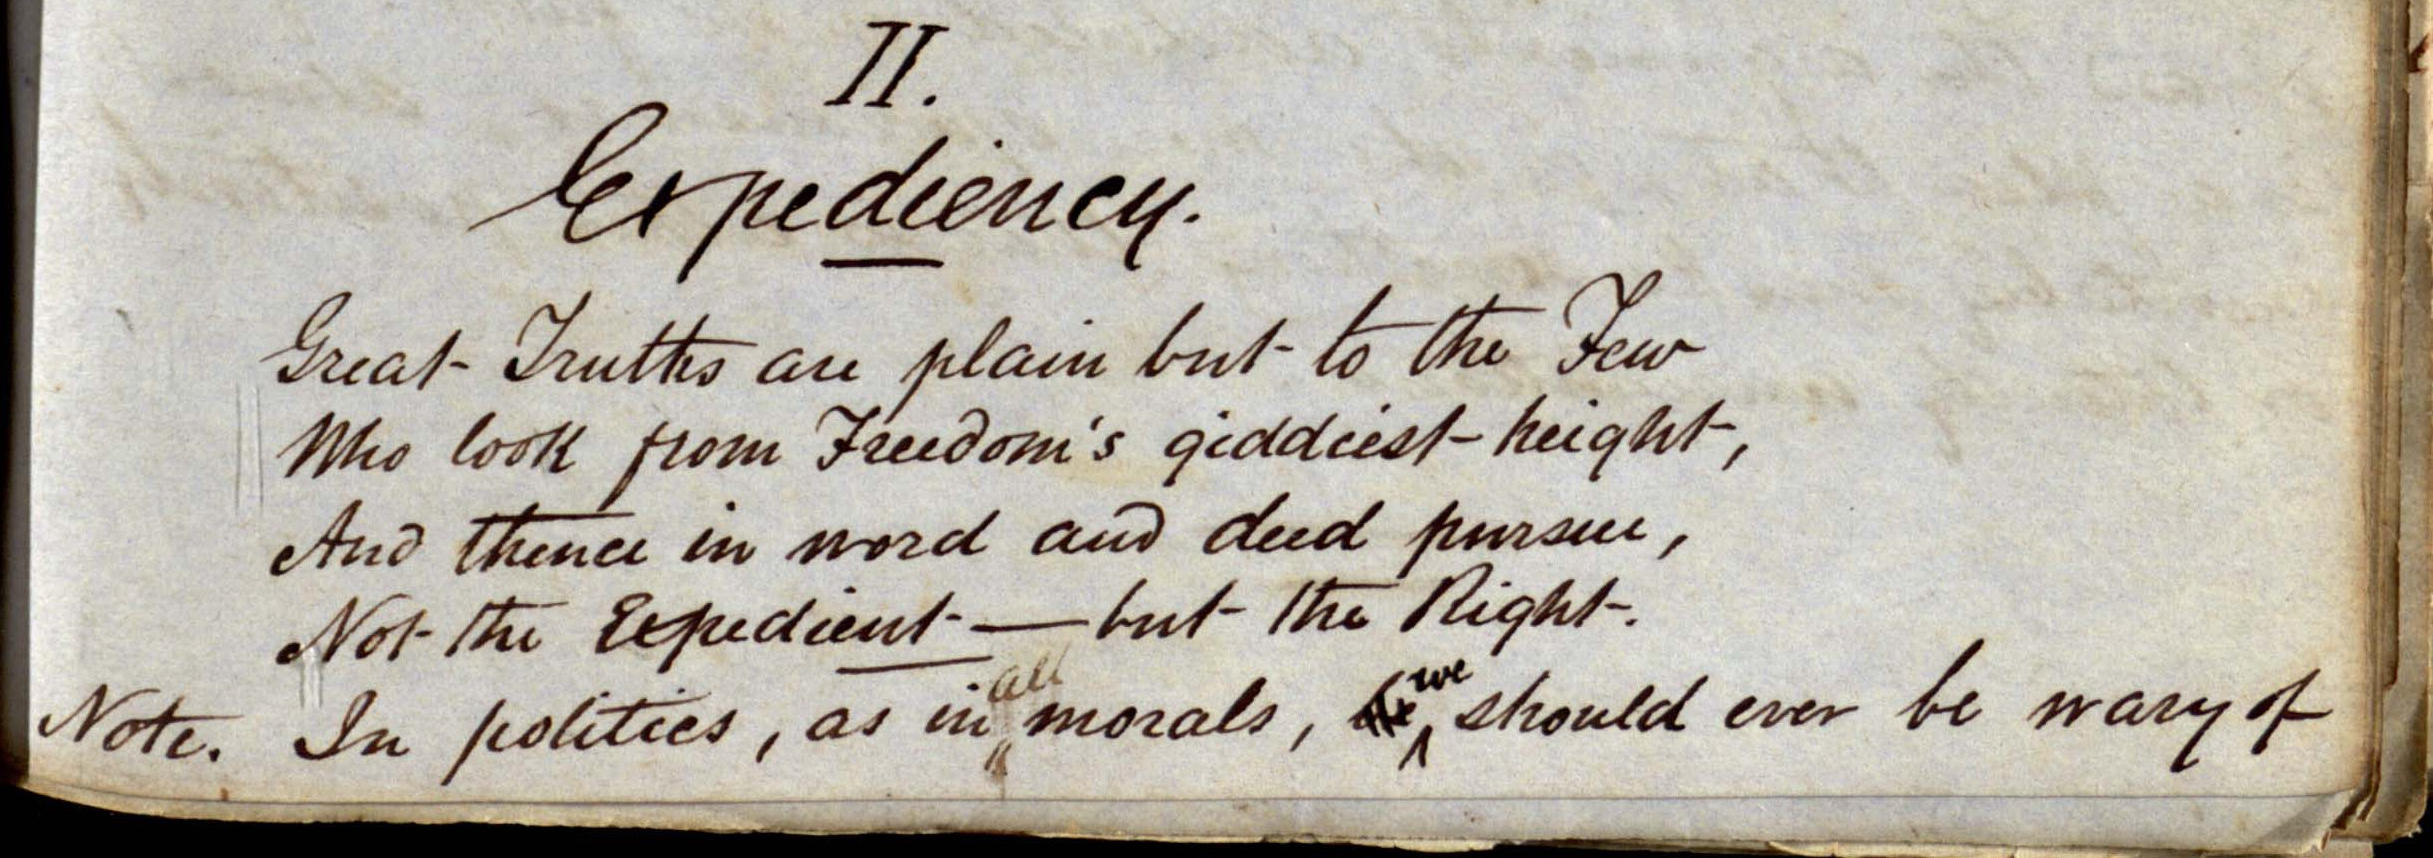 II.
Expediency.
Great Truths are plain but to the Few
Who look from Freedom's giddiest height,
And thence in word and deed pursue,
Not the Expedient — but the Right.
Note. In politics, as in all morals, we should ever be wary of